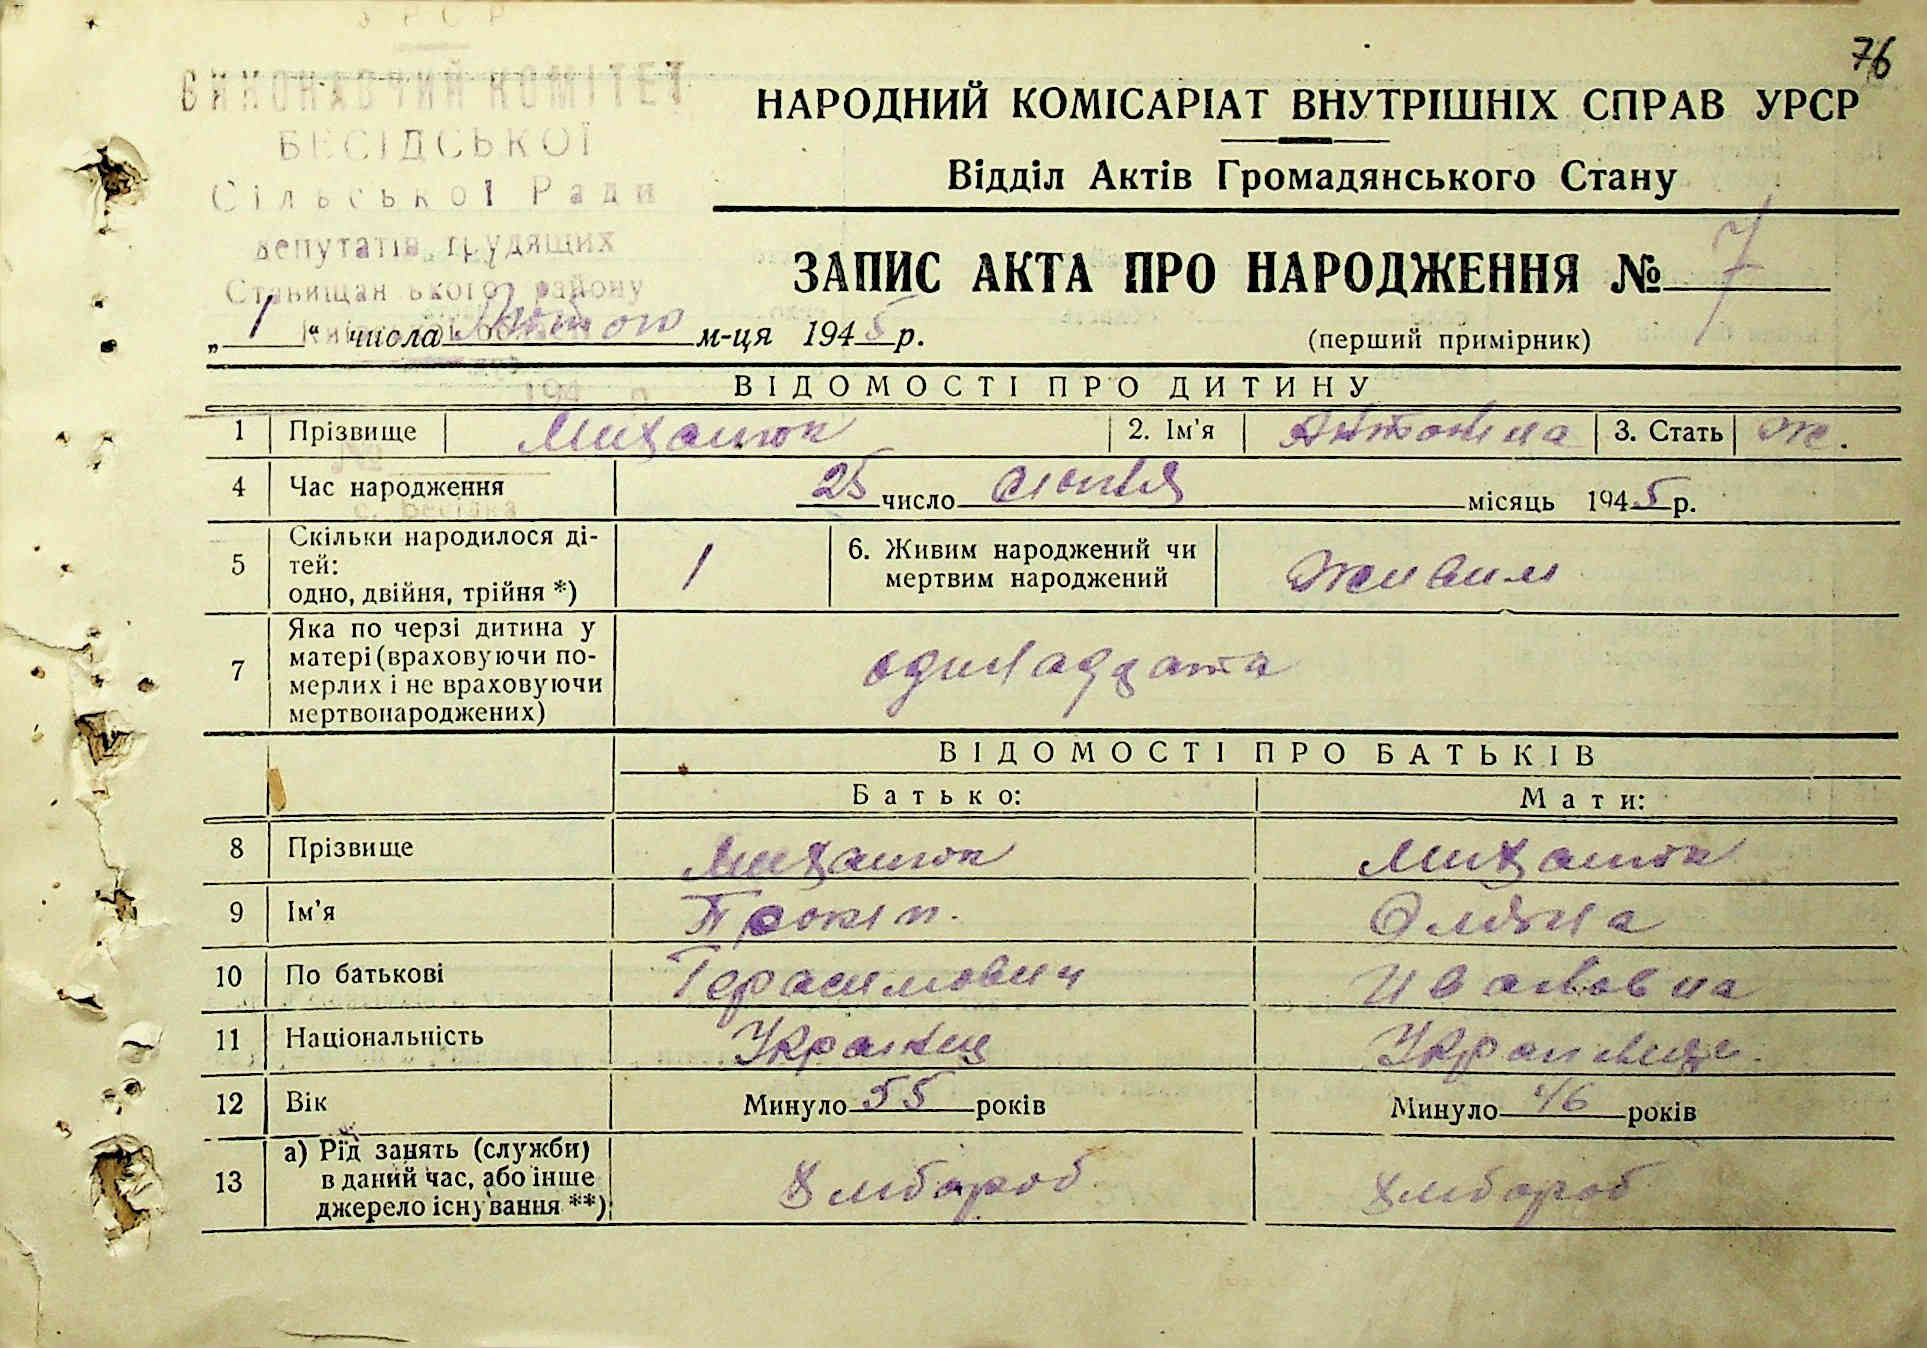 76
УРСР
ВИКОНАВЧИЙ КОМІТЕТ
БЕСІДСЬКОЇ
Сільської Ради
депутатів трудящих
Ставищанського району
НАРОДНИЙ КОМІСАРІАТ ВНУТРІШНІХ СПРАВ УРСР
Відділ Актів Громадянського Стану
ЗАПИС АКТА ПРО НАРОДЖЕННЯ № 7
„ 1 " числа Лютого м-ця 1945 р.
(перший примірник)
ВІДОМОСТІ ПРО ДИТИНУ
1 Прізвище Михалюк 2. Ім'я Антонина 3. Стать ж.
4 Час народження 25 число січня місяць 1945 р.
5 Скільки народилося ді-
тей:
одно, двійня, трійня *) 1
6. Живим народжений чи
мертвим народжений Живим
7 Яка по черзі дитина у
матері (враховуючи по-
мерлих і не враховуючи
мертвонароджених) одинадцята
ВІДОМОСТІ ПРО БАТЬКІВ
Батько: Мати:
8 Прізвище Михалюк Михалюк
9 Ім'я Прокіп.
10 По батькові Герасимович Ивановна
11 Національність Українец Українка.
12 Вік Минуло 55 років Минуло 46 років
13 а) Рід занять (служби)
в даний час, або інше
джерело існування **) Хлібороб Хлібороб